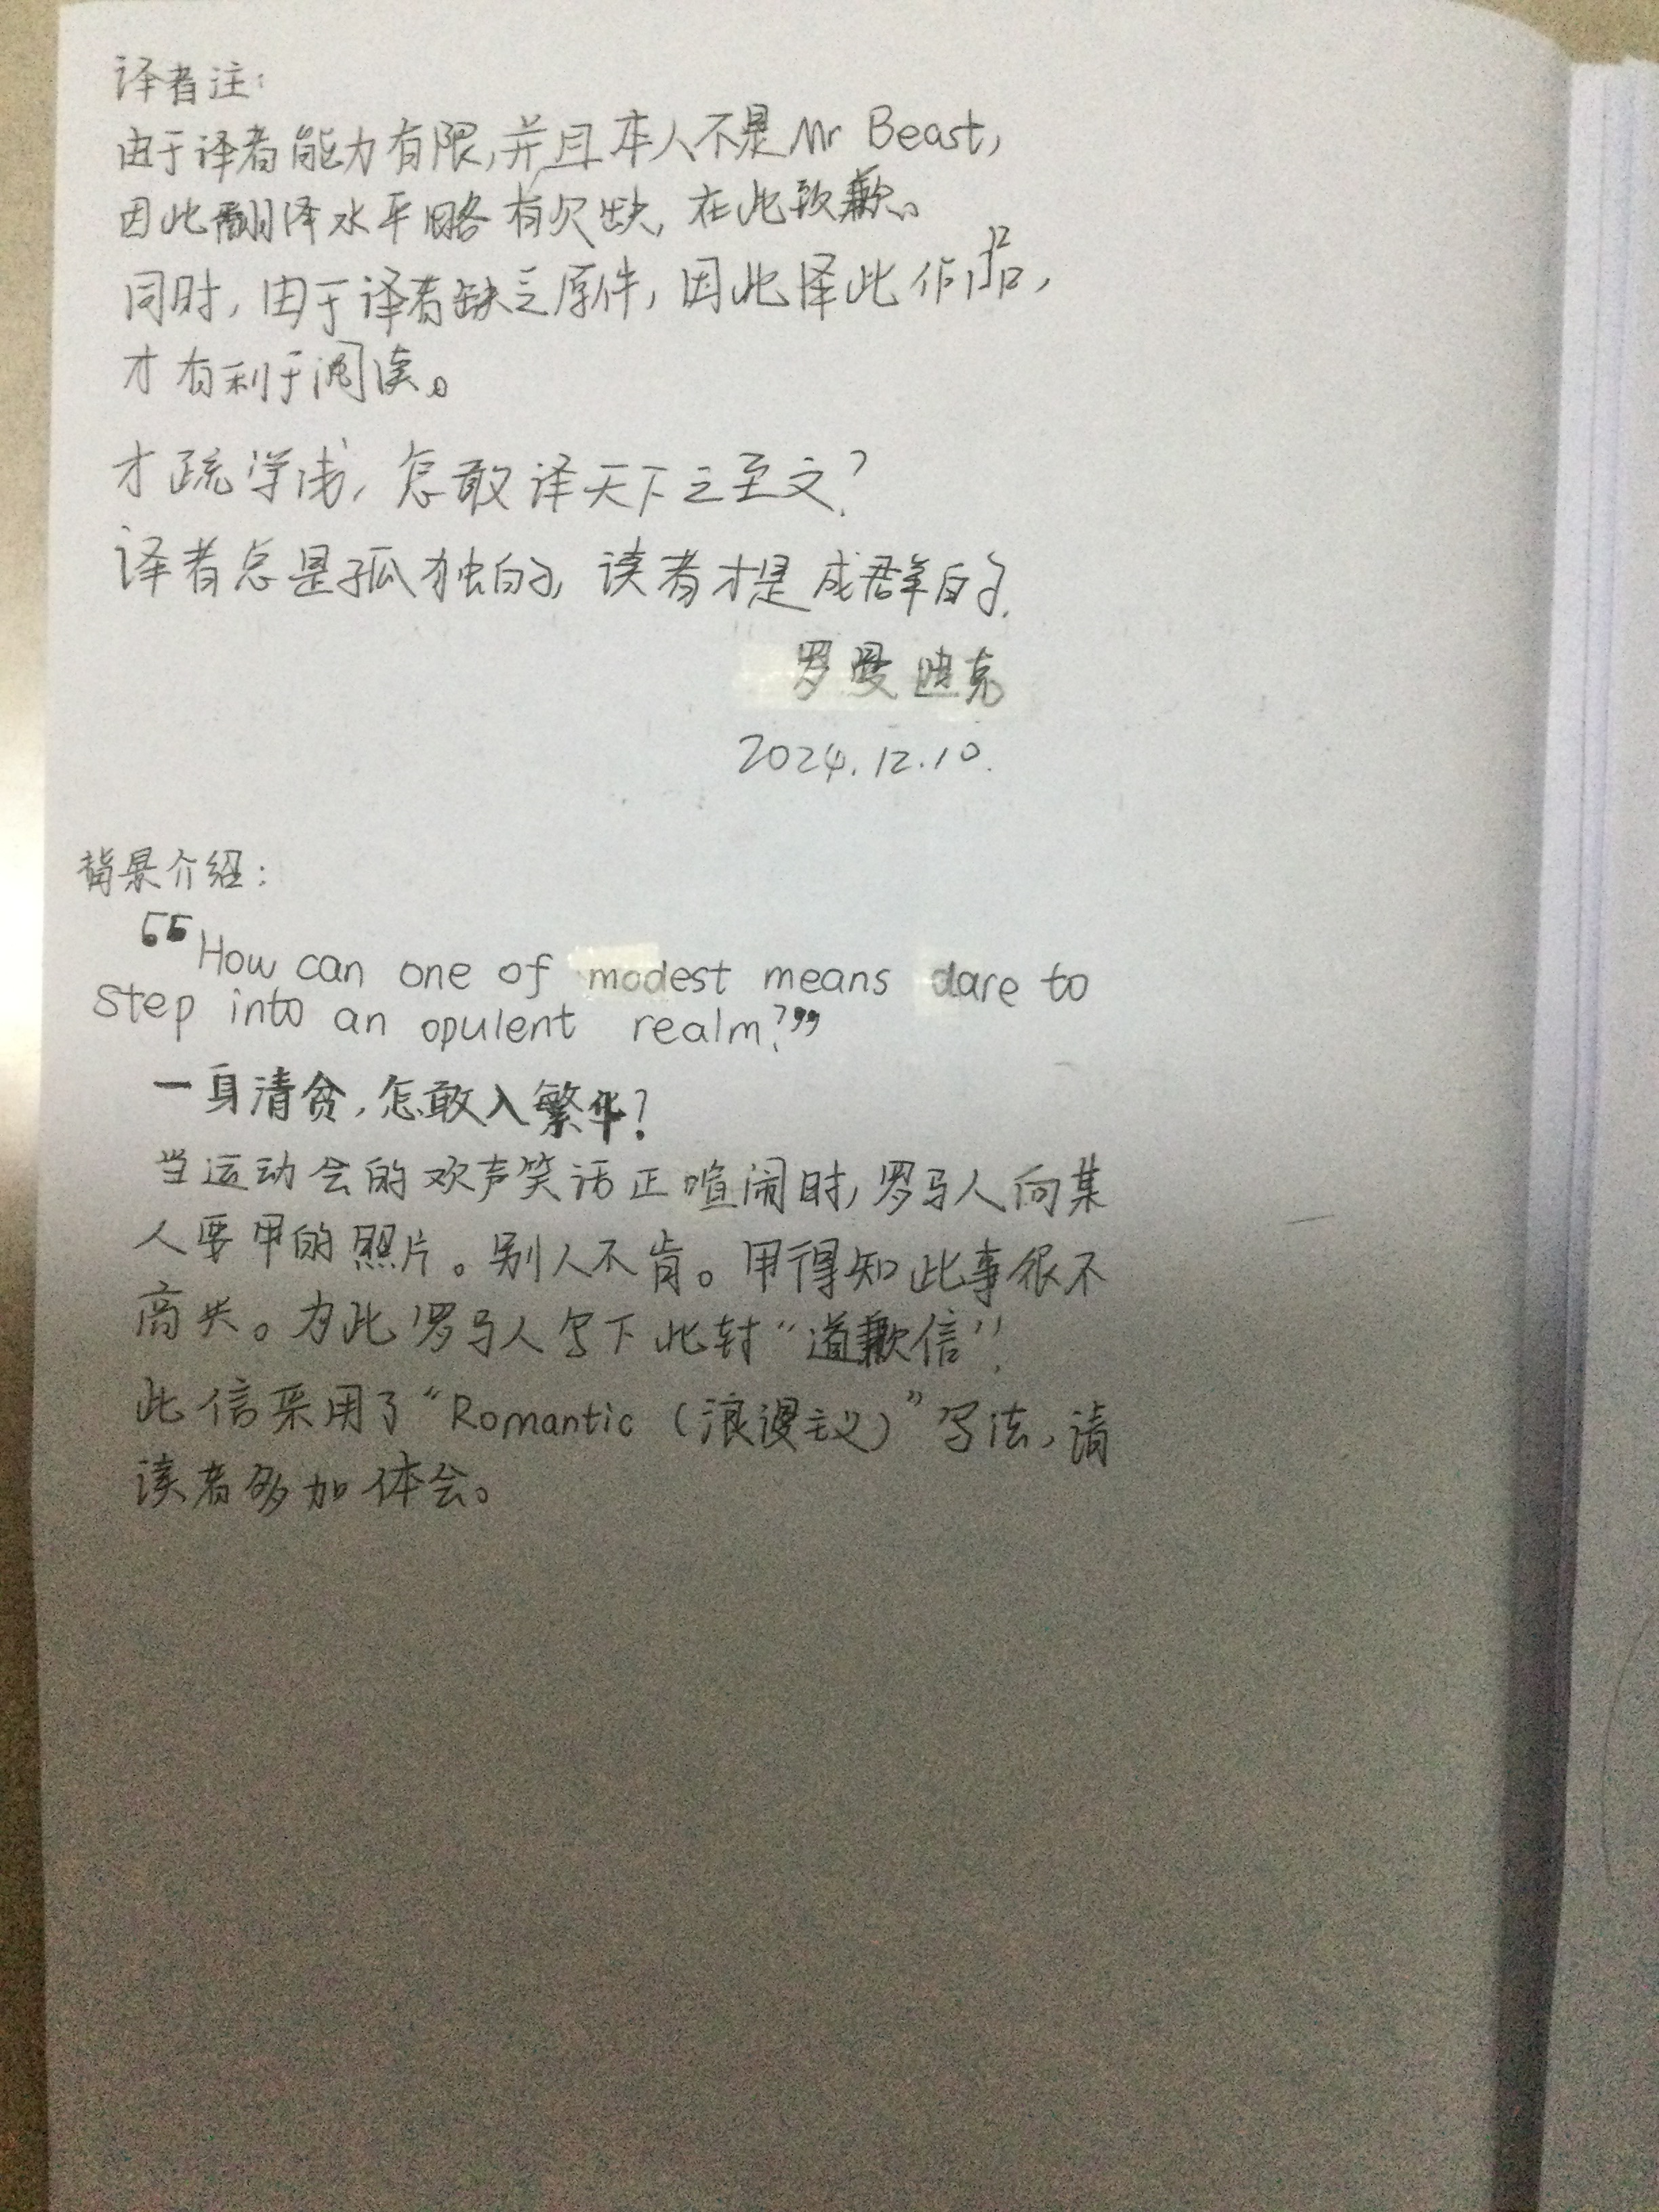 译者注：
由于译者能力有限，并且本人不是Mr Beast，
因此翻译水平略有欠缺，在此致歉。
同时，由于译者缺乏原件，因此译此作品，
才有利于阅读。
才疏学浅，怎敢译天下之至文？
译者总是孤独的，读者才是成群的。
罗曼迪克
2024.12.10.
背景介绍：
“How can one of modest means dare to
step into an opulent realm?”
一身清贫，怎敢入繁华？
当运动会的欢声笑话正喧闹时，罗马人向某
人要甲的照片。别人不肯。甲得知此事很不
高兴。为此罗马人写下此封“道歉信”！
此信采用了“Romantic（浪漫主义）”写法，请
读者多加体会。